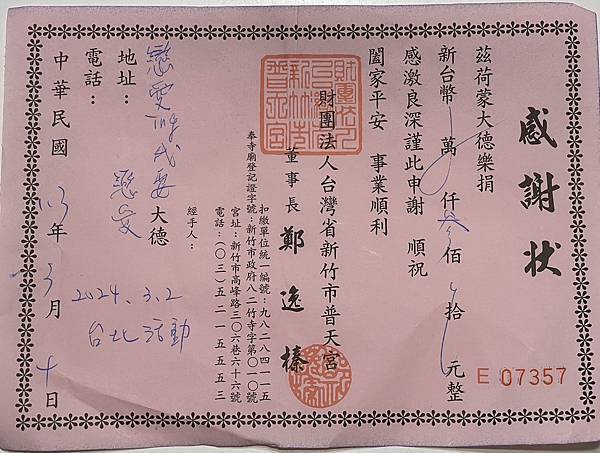 感謝狀
茲荷蒙大德樂捐
新台幣 萬 仟 佰 拾 元整
感激良深謹此申謝 順祝
闔家平安 事業順利
財團法人台灣省新竹市普天宮
董事長 鄭逸榛
扣繳單位統一編號：九八二八四一一五
奉寺廟登記證字號：新竹市政府八二竹寺字第〇一〇號
宮址：新竹市高峰路三〇六巷六十六號
電話：（〇三）五二一五五五三
經手人：
戀愛時代 要戀愛 大德
地址：
電話：
2024.3.2
台北活動
中華民國 113 年 3 月 十 日
E 07357